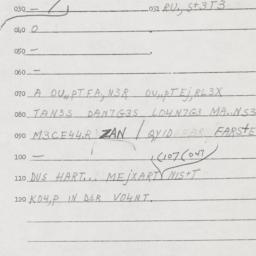 030 — 031 RU, S+3T3
040 O
050 —
060 —
070 A OU,,PTFA,N3R OU,,PTEJ,RL3X
080 TAN3S DAN7G3S LO4N7G3 MA..NS3
090 M3CE44.R ZAN / QYID FARSTE
100 —
110 DUS HART... MEJXART NIST
120 KO4,P IN DER VO4NT.